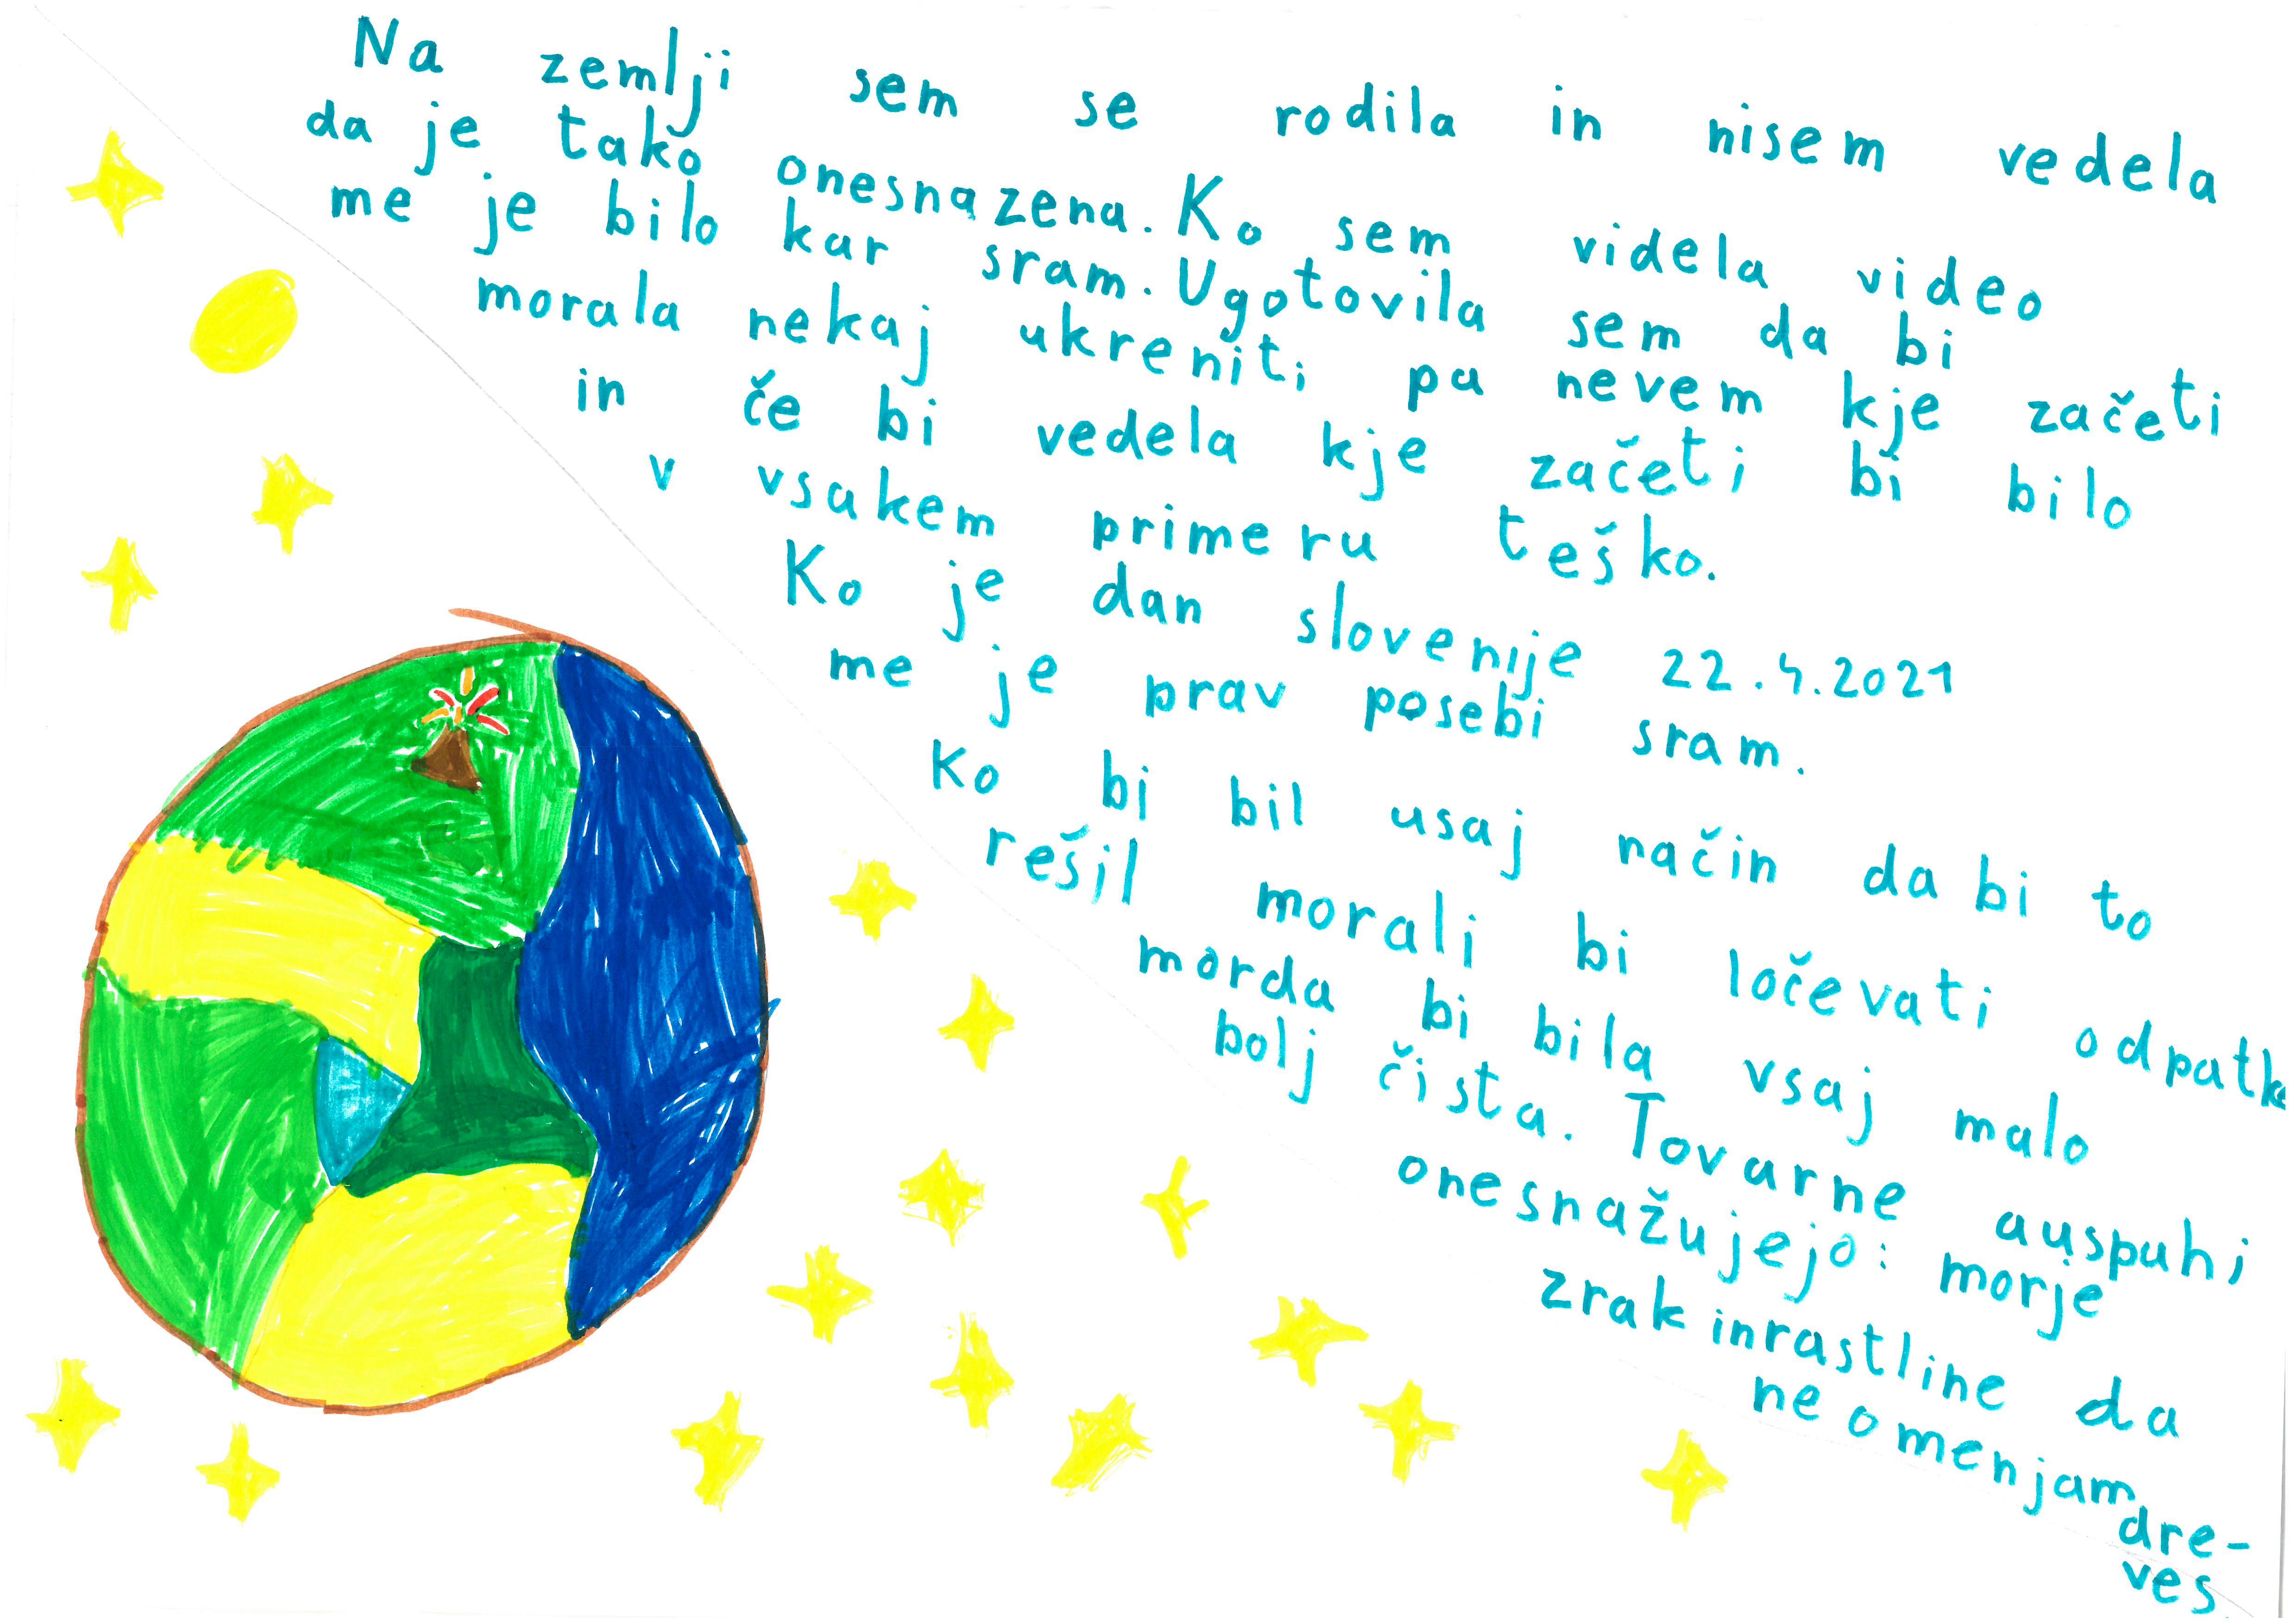 Na zemlji sem se rodila in nisem vedela
da je tako onesnazena. Ko sem videla video
me je bilo kar sram. Ugotovila sem da bi
morala nekaj ukreniti pa nevem kje začeti
in če bi vedela kje začeti bi bilo
v vsakem primeru teško.
Ko je dan slovenije 22.4.2021
me je prav posebi sram.
Ko bi bil usaj način da bi to
rešil morali bi ločevati odpatk
morda bi bila vsaj malo
bolj čista. Tovarne auspuhi
onesnažujejo: morje
zrak inrastline da
ne omenjam
dre-
ves